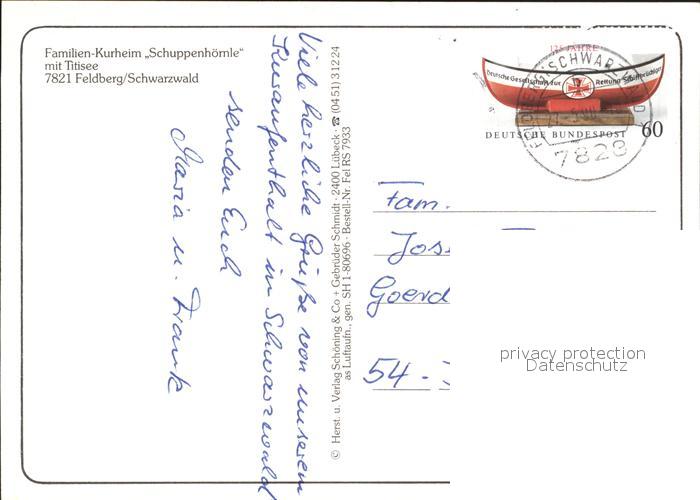 Familien-Kurheim „Schuppenhörnle“
mit Titisee
7821 Feldberg/Schwarzwald
Viele herzliche Grüße von unserem
Kuraufenthalt im Schwarzwald
senden Euch
Maria u. Frank
© Herst. u. Verlag Schöning & Co + Gebrüder Schmidt · 2400 Lübeck · ☎ (0451) 31224
as Luftaufn., gen. SH 1-80696 · Bestell-Nr. Fel RS 7933
125 JAHRE
Deutsche Gesellschaft zur Rettung Schiffbrüchiger
DEUTSCHE BUNDESPOST 60
(SCHWARZWALD)
7823
Fam.
Jos
Goerd
54 -
privacy protection
Datenschutz